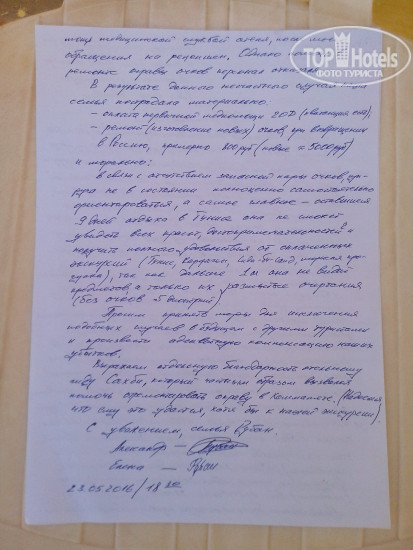 TOP Hotels
ФОТО ТУРИСТА
мощь медицинской службой отеля, после
обращения на рецепшен. Однако
ремонте оправы очков персонал
В результате данного несчастного случая
семья пострадала материально:
– оплата первичной медпомощи 20D
– ремонт (изготовление новых) очков, при возвращении
в Россию, примерно 800 руб (новые = 5000 руб)
и морально:
в связи с отсутствием запасной пары очков,
не в состоянии полноценно самостоятельно
ориентироваться, а самое главное – оставшиеся
9 дней отдыха в Тунисе она не сможет
увидеть всех красот, достопримечательностей и
получить полного удовольствия от оплаченных
экскурсий (Тунис, Карфаген, Сиди-Бу-Саид, морская про-
гулка), так как дальше 1 м она не видит
предметов, а только их размытые очертания
(без очков -5 диоптрий)
Просим принять меры для исключения
подобных случаев в будущем с другими туристами
и произвести адекватную компенсацию наших
убытков.
Выражаем отдельную благодарность отельному
гиду Сахби, который частным образом вызвался
помочь отремонтировать оправу в Хаммамете. (Надеемся
что ему это удастся, хотя бы к нашей экскурсии).
С уважением, семья Рубан.
Александр – Рубан
Елена – Рубан
23.05.2016 / 18 00